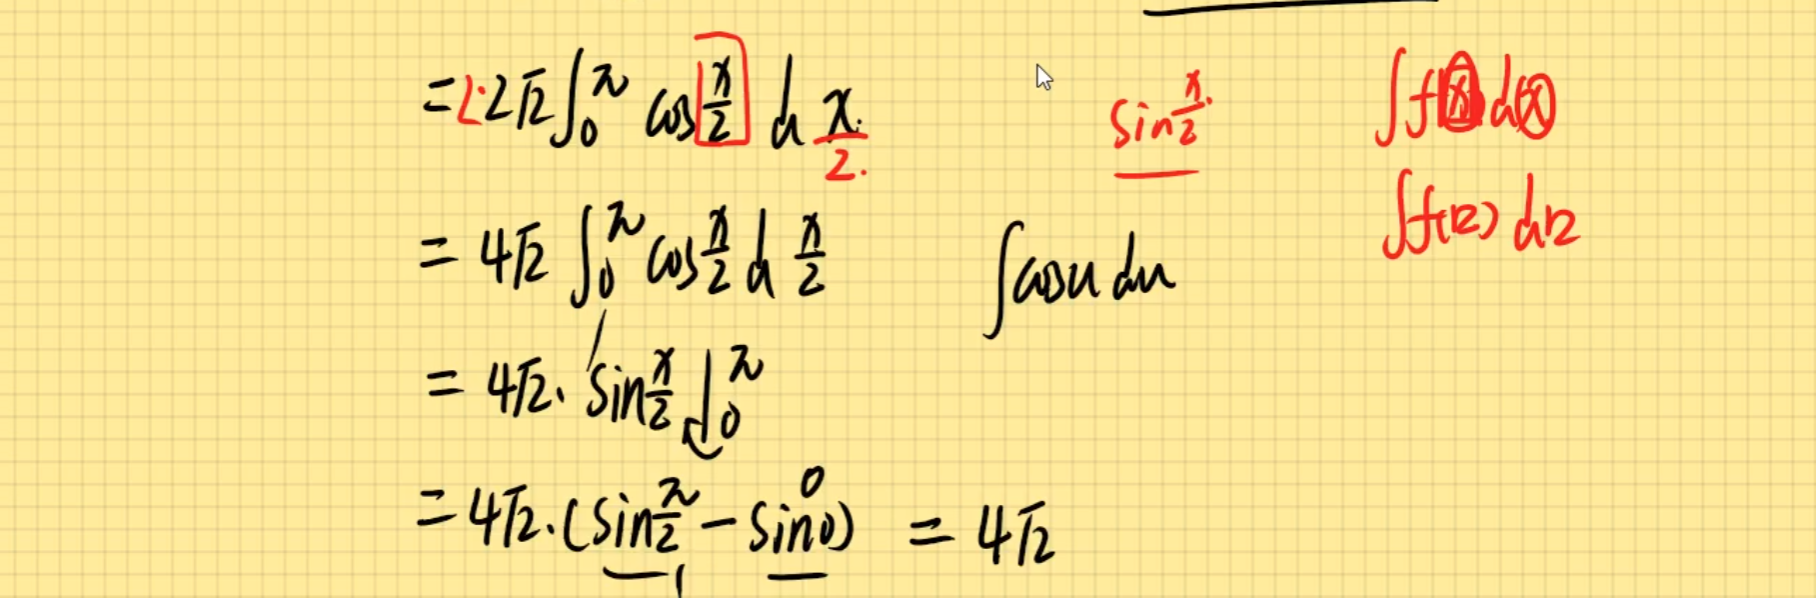 = 2·2√2 ∫₀^π cos x/2 d x/2.
sin x/2.
∫f(x)d(x)
∫f(12) d12
= 4√2 ∫₀^π cos x/2 d x/2
∫cosu du
= 4√2. sin x/2 |₀^π
= 4√2.(sin π/2 - sin0) = 4√2
1
0